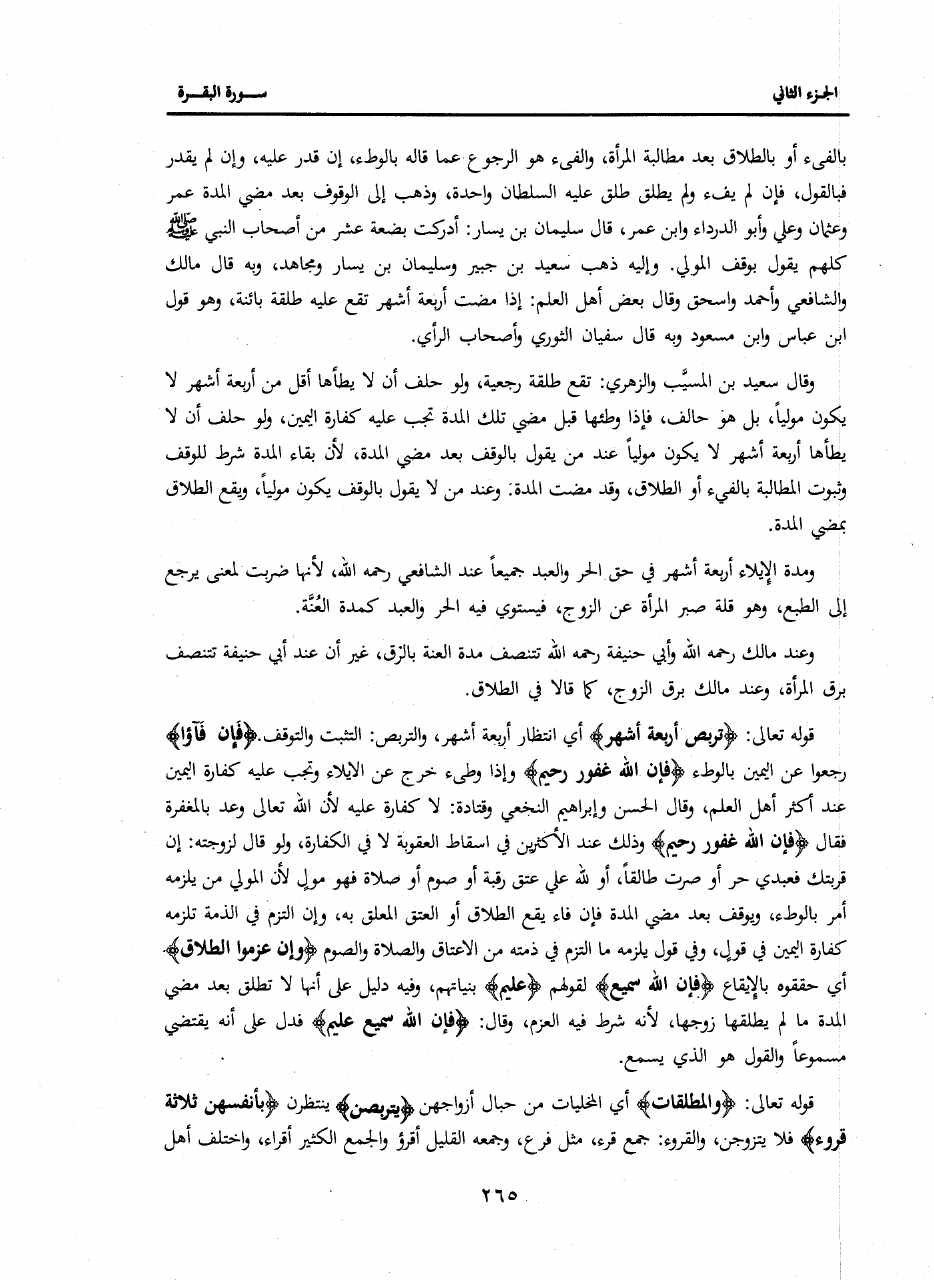 الجزء الثاني
ســورة البقــرة
بالفىء أو بالطلاق بعد مطالبة المرأة، والفىء هو الرجوع عما قاله بالوطء، إن قدر عليه، وإن لم يقدر
فبالقول، فإن لم يفء ولم يطلق طلق عليه السلطان واحدة، وذهب إلى الوقوف بعد مضي المدة عمر
وعثمان وعلي وأبو الدرداء وابن عمر، قال سليمان بن يسار: أدركت بضعة عشر من أصحاب النبي ﷺ
كلهم يقول بوقف المولي. وإليه ذهب سعيد بن جبير وسليمان بن يسار ومجاهد، وبه قال مالك
والشافعي وأحمد واسحق وقال بعض أهل العلم: إذا مضت أربعة أشهر تقع عليه طلقة بائنة، وهو قول
ابن عباس وابن مسعود وبه قال سفيان الثوري وأصحاب الرأي.
وقال سعيد بن المسيَّب والزهري: تقع طلقة رجعية، ولو حلف أن لا يطأها أقل من أربعة أشهر لا
يكون مولياً، بل هو حالف، فإذا وطئها قبل مضي تلك المدة تجب عليه كفارة اليمين، ولو حلف أن لا
يطأها أربعة أشهر لا يكون مولياً عند من يقول بالوقف بعد مضي المدة، لأن بقاء المدة شرط للوقف
وثبوت المطالبة بالفيء أو الطلاق، وقد مضت المدة: وعند من لا يقول بالوقف يكون مولياً، ويقع الطلاق
بمضي المدة.
ومدة الإيلاء أربعة أشهر في حق الحر والعبد جميعاً عند الشافعي رحمه الله، لأنها ضربت لمعنى يرجع
إلى الطبع، وهو قلة صبر المرأة عن الزوج، فيستوي فيه الحر والعبد كمدة العُنَّة.
وعند مالك رحمه الله وأبي حنيفة رحمه الله تتنصف مدة العنة بالرق، غير أن عند أبي حنيفة تتنصف
برق المرأة، وعند مالك برق الزوج، كما قالا في الطلاق.
قوله تعالى: ﴿تربص أربعة أشهر﴾ أي انتظار أربعة أشهر، والتربص: التثبت والتوقف. ﴿فَإن فَآؤا﴾
رجعوا عن اليمين بالوطء ﴿فإن الله غفور رحيم﴾ وإذا وطىء خرج عن الايلاء وتجب عليه كفارة اليمين
عند أكثر أهل العلم، وقال الحسن وإبراهيم النخعي وقتادة: لا كفارة عليه لأن الله تعالى وعد بالمغفرة
فقال ﴿فإن الله غفور رحيم﴾ وذلك عند الأكثرين في اسقاط العقوبة لا في الكفارة، ولو قال لزوجته: إن
قربتك فعبدي حر أو صرت طالقاً، أو لله علي عتق رقبة أو صوم أو صلاة فهو مولٍ لأن المولي من يلزمه
أمر بالوطء، ويوقف بعد مضي المدة فإن فاء يقع الطلاق أو العتق المعلق به، وإن التزم في الذمة تلزمه
كفارة اليمين في قولٍ، وفي قول يلزمه ما التزم في ذمته من الاعتاق والصلاة والصوم ﴿وإن عزموا الطلاق﴾
أي حققوه بالإيقاع ﴿فإن الله سميع﴾ لقولهم ﴿عليم﴾ بنياتهم، وفيه دليل على أنها لا تطلق بعد مضي
المدة ما لم يطلقها زوجها، لأنه شرط فيه العزم، وقال: ﴿فإن الله سميع عليم﴾ فدل على أنه يقتضي
مسموعاً والقول هو الذي يسمع.
قوله تعالى: ﴿والمطلقات﴾ أي المخليات من حبال أزواجهن ﴿يتربصن﴾ ينتظرن ﴿بأنفسهن ثلاثة
قروء﴾ فلا يتزوجن، والقروء: جمع قرء، مثل فرع، وجمعه القليل أقرؤ والجمع الكثير أقراء، واختلف أهل
٢٦٥